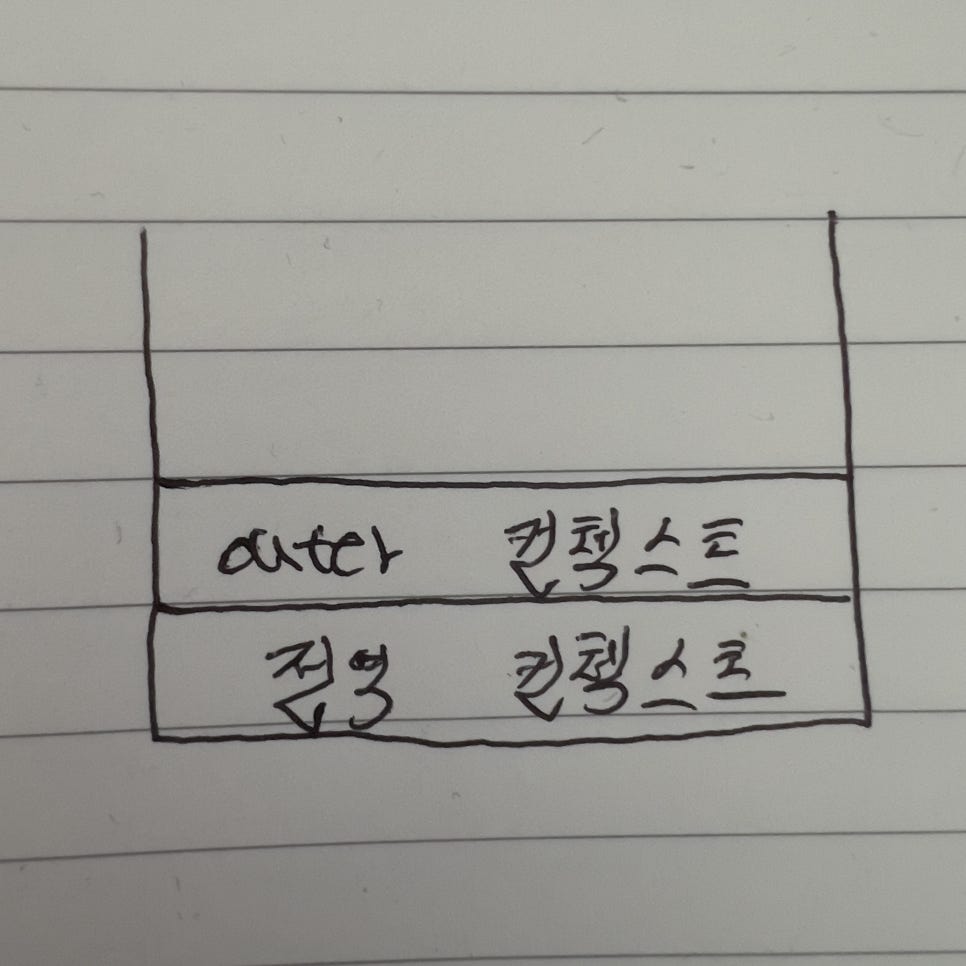 outer 컨텍스트
전역 컨텍스트